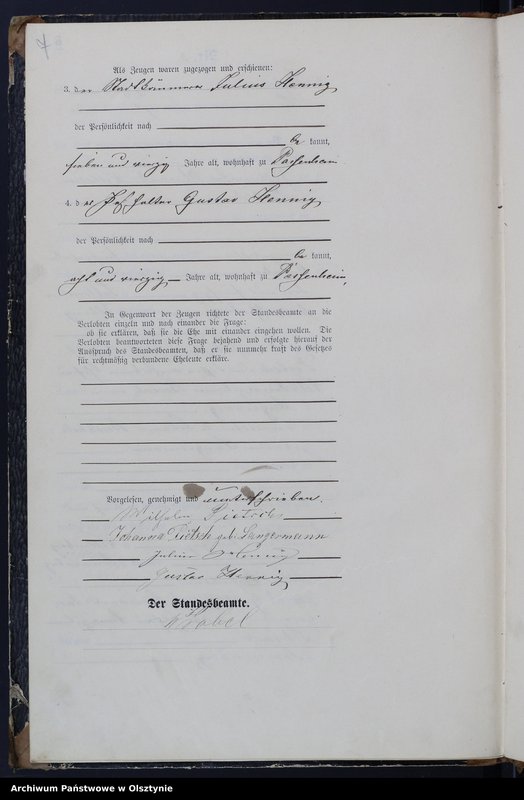 Als Zeugen waren zugezogen und erschienen:
3. der Stadtkämmerer Julius Hennig
der Persönlichkeit nach
be kannt,
sieben und vierzig Jahre alt, wohnhaft zu Passenheim
4. der Gustav Hennig,
der Persönlichkeit nach
be kannt,
acht und vierzig Jahre alt, wohnhaft zu Passenheim,
In Gegenwart der Zeugen richtete der Standesbeamte an die
Verlobten einzeln und nach einander die Frage:
ob sie erklären, daß sie die Ehe mit einander eingehen wollen. Die
Verlobten beantworteten diese Frage bejahend und erfolgte hierauf der
Ausspruch des Standesbeamten, daß er sie nunmehr kraft des Gesetzes
für rechtmäßig verbundene Eheleute erkläre.
Vorgelesen, genehmigt und unterschrieben.
Wilhelm Pietsch
Johanna Pietsch geb. Langermann
Julius Hennig
Gustav Hennig
Der Standesbeamte.
Archiwum Państwowe w Olsztynie